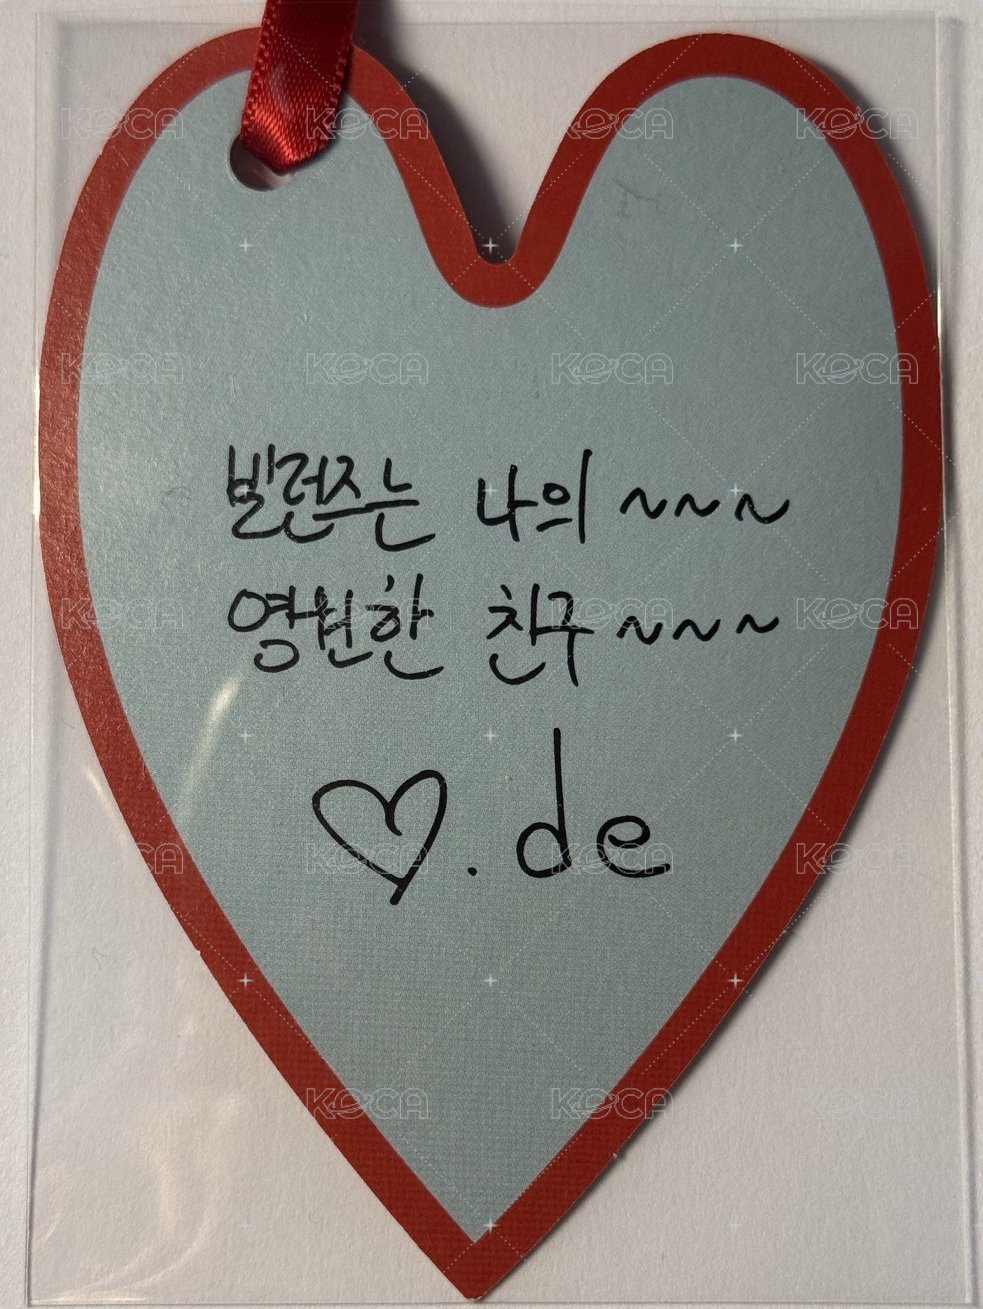 KOCA KOCA KOCA KOCA
KOCA KOCA KOCA KOCA
발런즈는 나의 ~~~
영원한 친구 ~~~
KOCA KOCA KOCA KOCA
♡.de
KOCA KOCA KOCA KOCA
KOCA KOCA KOCA